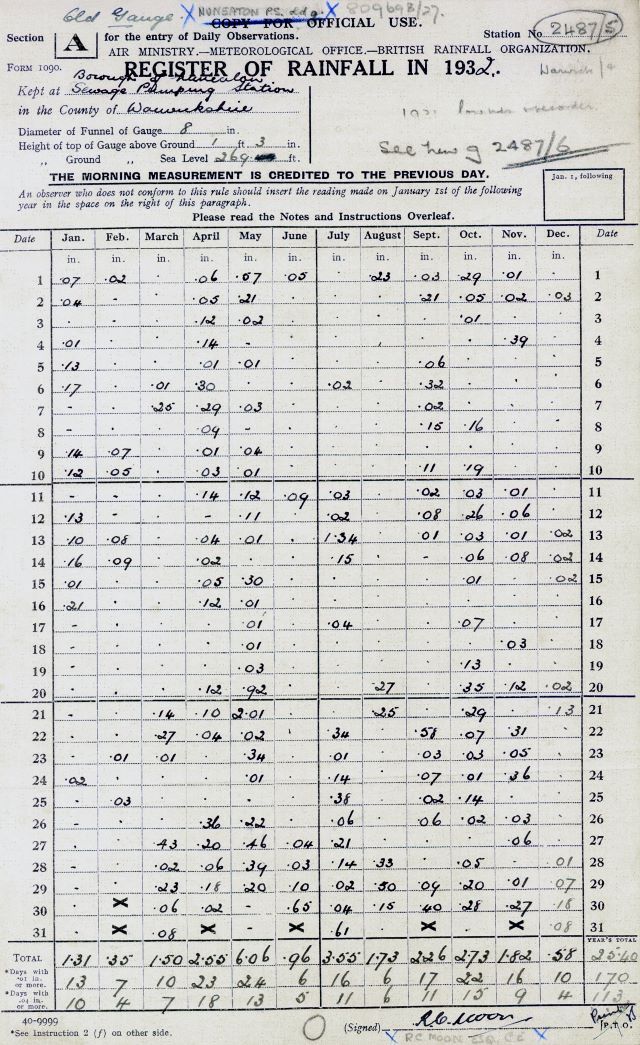 Old Gauge X NUNEATON PS. X 809698/27.
COPY FOR OFFICIAL USE.
Section A for the entry of Daily Observations. Station No 2487/5
AIR MINISTRY.—METEOROLOGICAL OFFICE.—BRITISH RAINFALL ORGANIZATION.
FORM 1090. REGISTER OF RAINFALL IN 1932. Warwick/4
Borough of Nuneaton
Kept at Sewage Pumping Station
in the County of Warwickshire
Diameter of Funnel of Gauge 8 in.
Height of top of Gauge above Ground 1 ft 3 in.
„ Ground „ Sea Level 269 ft.
See new g 2487/6
THE MORNING MEASUREMENT IS CREDITED TO THE PREVIOUS DAY.
Jan. 1, following
An observer who does not conform to this rule should insert the reading made on January 1st of the following
year in the space on the right of this paragraph.
Please read the Notes and Instructions Overleaf.
Date Jan. Feb. March April May June July August Sept. Oct. Nov. Dec. Date
in. in. in. in. in. in. in. in. in. in. in. in.
1 .07 .02 · .06 .57 .05 · .23 .03 .29 .01 · 1
2 .04 - · .05 .21 · · · .21 .05 .02 .03 2
3 · · · .12 .02 · · · · .01 · · 3
4 .01 · · .14 - · · · · · .39 · 4
5 .13 · · .01 .01 · · · .06 · · · 5
6 .17 · .01 .30 · · .02 · .32 · · · 6
7 - · .25 .29 .03 · · · .02 · · · 7
8 · · · .09 - · · · .15 .16 · · 8
9 .14 .07 · .01 .04 · · · · · · · 9
10 .12 .05 · .03 .01 · · · .11 .19 · · 10
11 - - · .14 .12 .09 .03 · .02 .03 .01 · 11
12 .13 · · - .11 · .02 · .08 .26 .06 · 12
13 .10 .08 · .04 .01 · 1.34 · .01 .03 .01 .02 13
14 .16 .09 · .02 · · .15 · - .06 .08 .02 14
15 .01 · · .05 .30 · · · · .01 · .02 15
16 .21 · · .12 .01 · · · · · · · 16
17 - · · · .01 · .04 · · .07 · · 17
18 · · · · .01 · · · · · .03 · 18
19 · · · · .03 · · · · .13 · · 19
20 · · · .12 .92 · · .27 · .35 .12 .02 20
21 - · .14 .10 2.01 · · .25 · .29 · .13 21
22 · · .27 .04 .02 · .34 · .51 .07 .31 · 22
23 · .01 .01 · .34 · .01 · .03 .03 .05 · 23
24 .02 · · · .01 · .14 · .07 .01 .36 · 24
25 · .03 · · · · .38 · .02 .14 · · 25
26 · · · .36 .22 · .06 · .06 .02 .03 · 26
27 · · .43 .20 .46 .04 .21 · · · .06 · 27
28 · · .02 .06 .39 .03 .14 .33 · .05 · .01 28
29 · · .23 .18 .20 .10 .02 .50 .09 .20 .01 .07 29
30 · X .06 .02 · .65 .04 .15 .40 .28 .27 .18 30
31 · X .08 X · X .61 · X · X .08 31
YEAR'S TOTAL
TOTAL 1.31 .35 1.50 2.55 6.06 .96 3.55 1.73 2.26 2.73 1.82 .58 25.40
*Days with .01 in. or more. 13 7 10 23 24 6 16 6 17 22 16 10 170
*Days with .04 in. or more. 10 4 7 18 13 5 11 6 11 15 9 4 113
40-9999
*See Instruction 2 (f) on other side.
(Signed) R.C. Moon
[P.T.O.
X R C MOON ESQ. C.E X